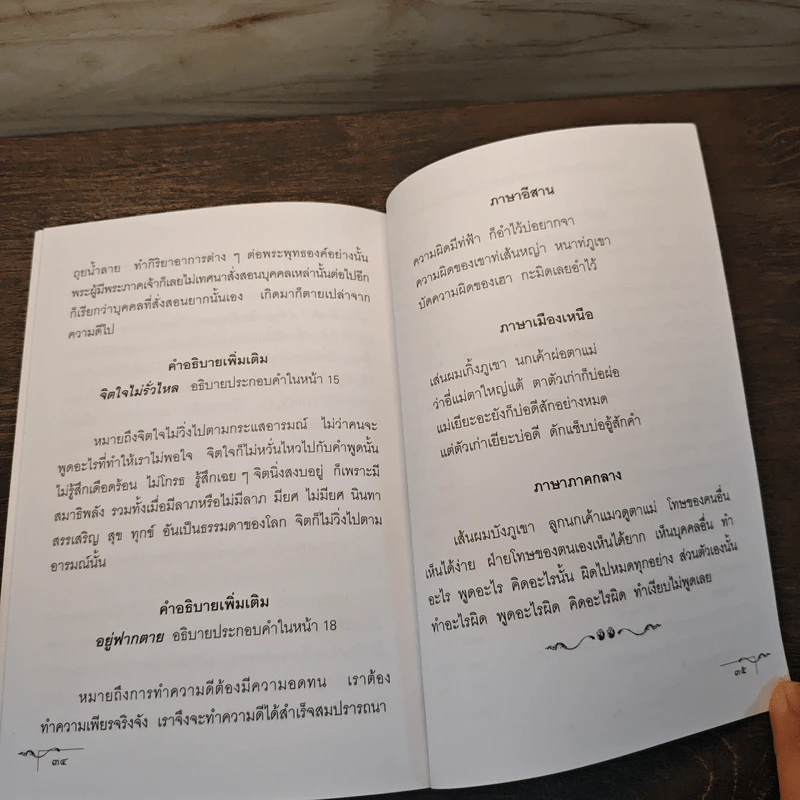 ถุยน้ำลาย ทำกิริยาอาการต่าง ๆ ต่อพระพุทธองค์อย่างนั้น
พระผู้มีพระภาคเจ้าก็เลยไม่เทศนาสั่งสอนบุคคลเหล่านั้นต่อไปอีก
ก็เรียกว่าบุคคลที่สั่งสอนยากนั้นเอง เกิดมาก็ตายเปล่าจาก
ความดีไป
คำอธิบายเพิ่มเติม
จิตใจไม่รั่วไหล อธิบายประกอบคำในหน้า 15
หมายถึงจิตใจไม่วิ่งไปตามกระแสอารมณ์ ไม่ว่าคนจะ
พูดอะไรที่ทำให้เราไม่พอใจ จิตใจก็ไม่หวั่นไหวไปกับคำพูดนั้น
ไม่รู้สึกเดือดร้อน ไม่โกรธ รู้สึกเฉย ๆ จิตนิ่งสงบอยู่ ก็เพราะมี
สมาธิพลัง รวมทั้งเมื่อมีลาภหรือไม่มีลาภ มียศ ไม่มียศ นินทา
สรรเสริญ สุข ทุกข์ อันเป็นธรรมดาของโลก จิตก็ไม่วิ่งไปตาม
อารมณ์นั้น
คำอธิบายเพิ่มเติม
อยู่ฟากตาย อธิบายประกอบคำในหน้า 18
หมายถึงการทำความดีต้องมีความอดทน เราต้อง
ทำความเพียรจริงจัง เราจึงจะทำความดีได้สำเร็จสมปรารถนา
๓๔
ภาษาอีสาน
ความผิดมีท่ฟ้า ก็อำไว้บ่อยากจา
ความผิดของเขาท่เส้นหญ่า หนาท่ภูเขา
บัดความผิดของเฮา กะมิดเลยอำไว้
ภาษาเมืองเหนือ
เส่นผมเกิ้งภูเขา นกเค้าผ่อตาแม่
ว่าอี่แม่ตาใหญ่แต้ ตาตัวเก่าก็บ่อผ่อ
แม่เยียะอะยังก็บ่อดีสักอย่างหมด
แต่ตัวเก่าเยียะบ่อดี ดักแซ็บบ่ออู้สักคำ
ภาษาภาคกลาง
เส้นผมบังภูเขา ลูกนกเค้าแมวดูตาแม่ โทษของคนอื่น
เห็นได้ง่าย ฝ่ายโทษของตนเองเห็นได้ยาก เห็นบุคคลอื่น ทำ
อะไร พูดอะไร คิดอะไรนั้น ผิดไปหมดทุกอย่าง ส่วนตัวเองนั้น
ทำอะไรผิด พูดอะไรผิด คิดอะไรผิด ทำเงียบไม่พูดเลย
๓๕